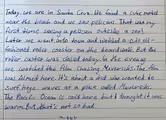 Today, we are in Santa Cruz. We found a cute motel
near the beach and we saw pelicans. That was my
first time seeing a pelican outside a zoo!
Later we went into town and walked a cute old-
fashioned roller coaster on the boardwalk. But the
roller coaster was called today. In the evening
we watched the film Chasing Mavericks. The film
was filmed here. It's about a kid who wanted to
surf huge waves at a place called Mavericks.
The Pacific Ocean is cold here, but I thought it was
warm. But that's not so bad.